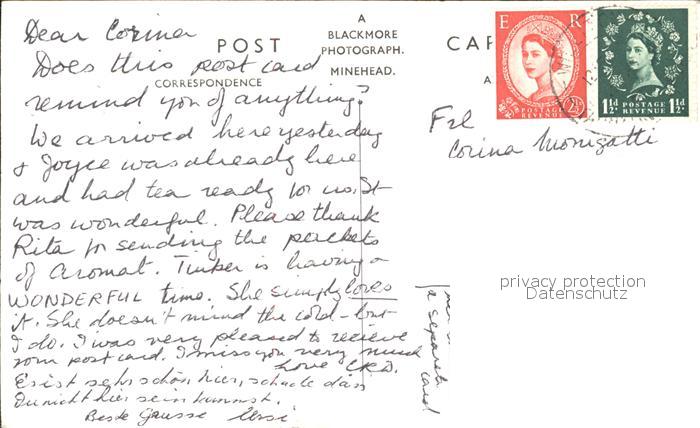 Dear Corina
POST CAR
Does this post card
CORRESPONDENCE
A
BLACKMORE
PHOTOGRAPH.
MINEHEAD.
A
remind you of anything?
We arrived here yesterday
& Joyce was already here
and had tea ready for us. It
was wonderful. Please thank
Rita for sending the packets
of aromat. Tinker is having a
WONDERFUL time. She simply loves
it. She doesn't mind the cold - but
I do. I was very pleased to recieve
your post card. I miss you very much
Love
Es ist sehr schön hier, schade dass
Du nicht hier sein kannst.
Beste Grüsse
a separate
card
E R
2½D
POSTAGE
REVENUE
1½D POSTAGE REVENUE 1½D
Frl
Corina Monigatti
privacy protection
Datenschutz